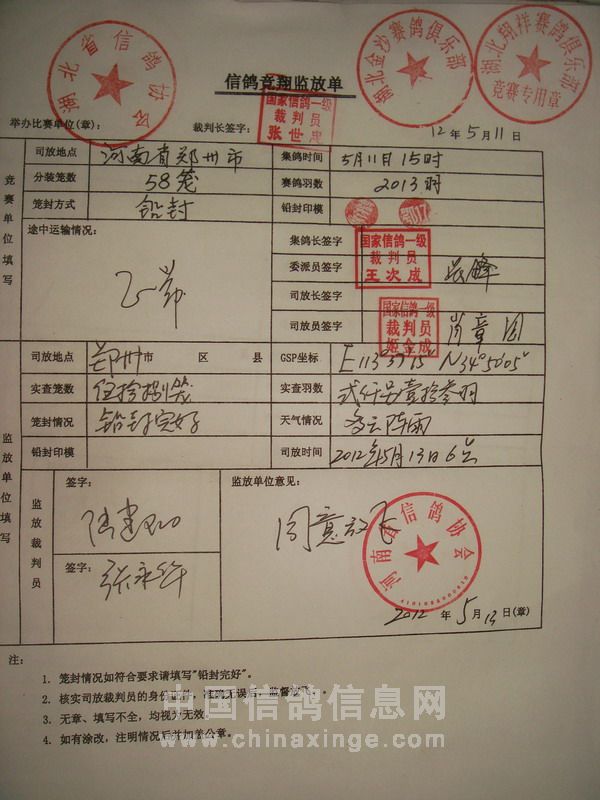 湖北省信鸽协会
湖北金沙赛鸽俱乐部
湖北翔祥赛鸽俱乐部
竞赛专用章
信鸽竞翔监放单
举办比赛单位(章): 裁判长签字: 12年5月11日
国家信鸽一级
裁判员
张世忠
竞赛单位填写
司放地点 河南省郑州市 集鸽时间 5月11日15时
分装笼数 58笼 赛鸽羽数 2013羽
笼封方式 铅封 铅封印模
途中运输情况: 正常
集鸽长签字
国家信鸽一级
裁判员
王次成
委派员签字
司放长签字
司放员签字
国家信鸽一级
裁判员
姬金成
监放单位填写
司放地点 郑州市 区 县 GSP坐标 E113°37′15″ N34°50′05″
实查笼数 伍拾捌笼 实查羽数 贰仟另壹拾叁羽
笼封情况 铅封完好 天气情况 多云阵雨
铅封印模 司放时间 2012年5月13日6点
监放裁判员
签字:
签字:
监放单位意见:
同意放飞
河南省信鸽协会
2012年5月13日(章)
注:
1. 笼封情况如符合要求请填写"铅封完好"。
2. 核实司放裁判员的身份证件,准确无误后,监督放飞。
3. 无章、填写不全,均视为无效。
4. 如有涂改,注明情况后并加盖公章。
中国信鸽信息网
www.chinaxinge.com